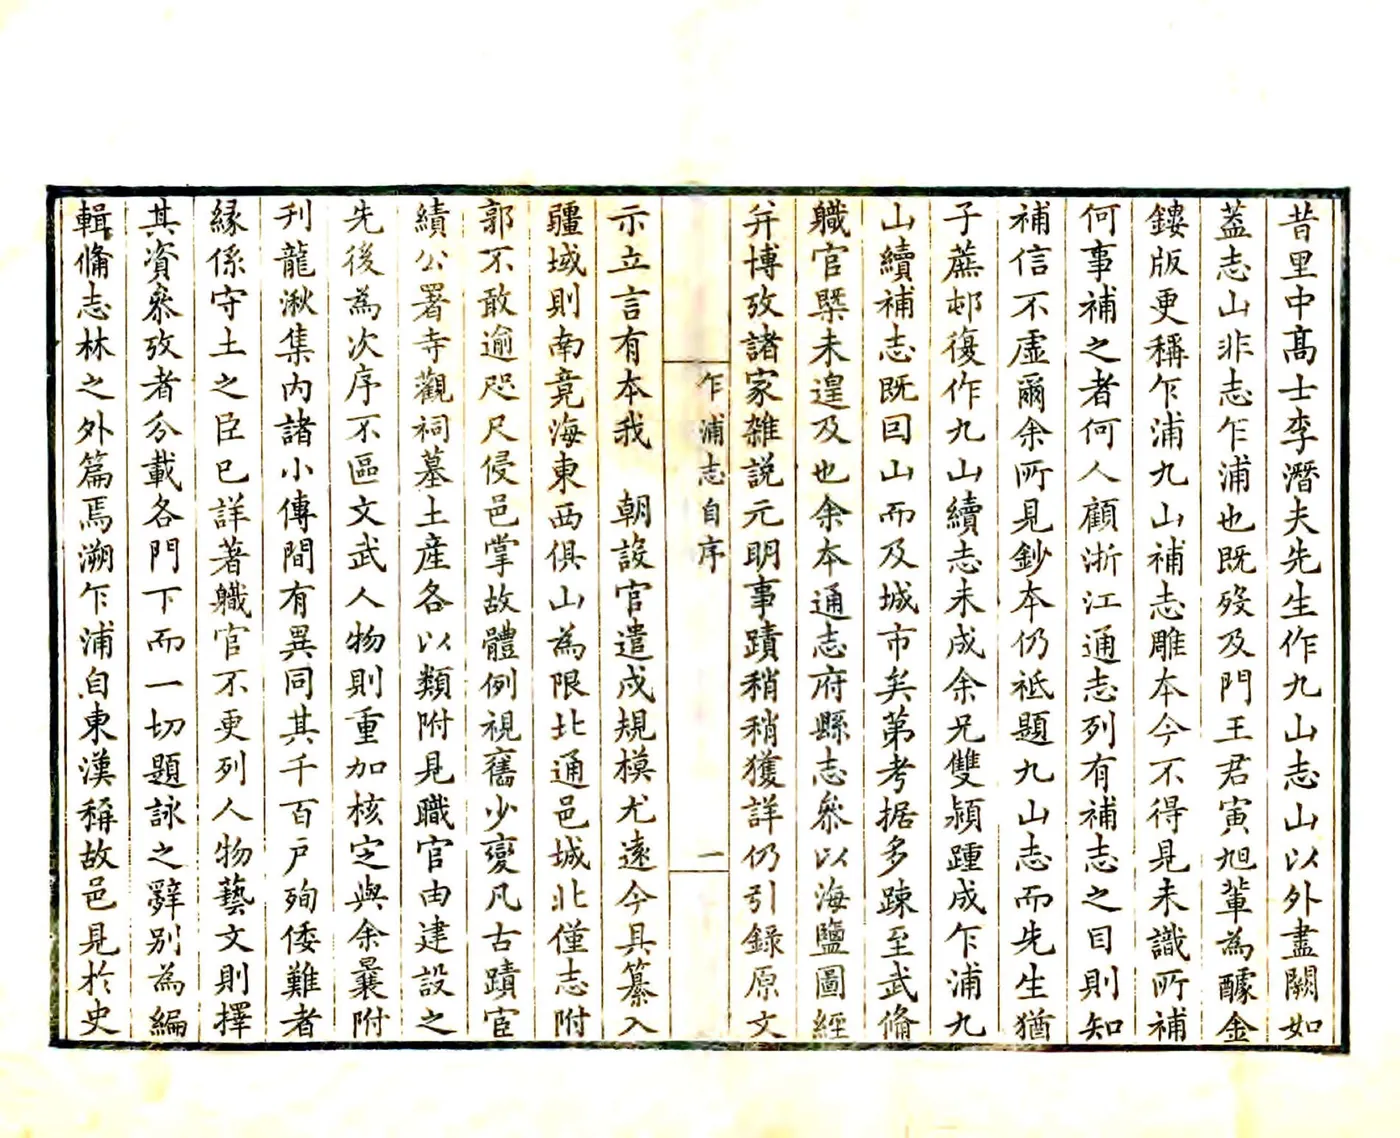 昔里中高士李潛夫先生作九山志山以外盡闕如
蓋志山非志乍浦也既歿及門王君寅旭輩為醵金
鏤版更稱乍浦九山補志雕本今不得見未識所補
何事補之者何人顧浙江通志列有補志之目則知
補信不虛爾余所見鈔本仍祗題九山志而先生猶
子蔗邨復作九山續志未成余兄雙潁踵成乍浦九
山續補志既因山而及城市矣第考据多踈至武俻
職官槩未遑及也余本通志府縣志叅以海鹽圖經
并博攷諸家雜說元明事蹟稍稍獲詳仍引錄原文
乍浦志自序
一
示立言有本我　朝設官遣戍規模尤遠今具纂入
疆域則南竟海東西俱山為限北通邑城北僅志附
郭不敢逾咫尺侵邑掌故體例視舊少變凡古蹟宦
績公署寺觀祠墓土產各以類附見職官由建設之
先後為次序不區文武人物則重加核定與余曩附
刋龍湫集內諸小傳間有異同其千百戶殉倭難者
緣係守土之臣已詳著職官不更列人物藝文則擇
其資叅攷者分載各門下而一切題詠之辭別為編
輯俻志林之外篇焉溯乍浦自東漢稱故邑見於史